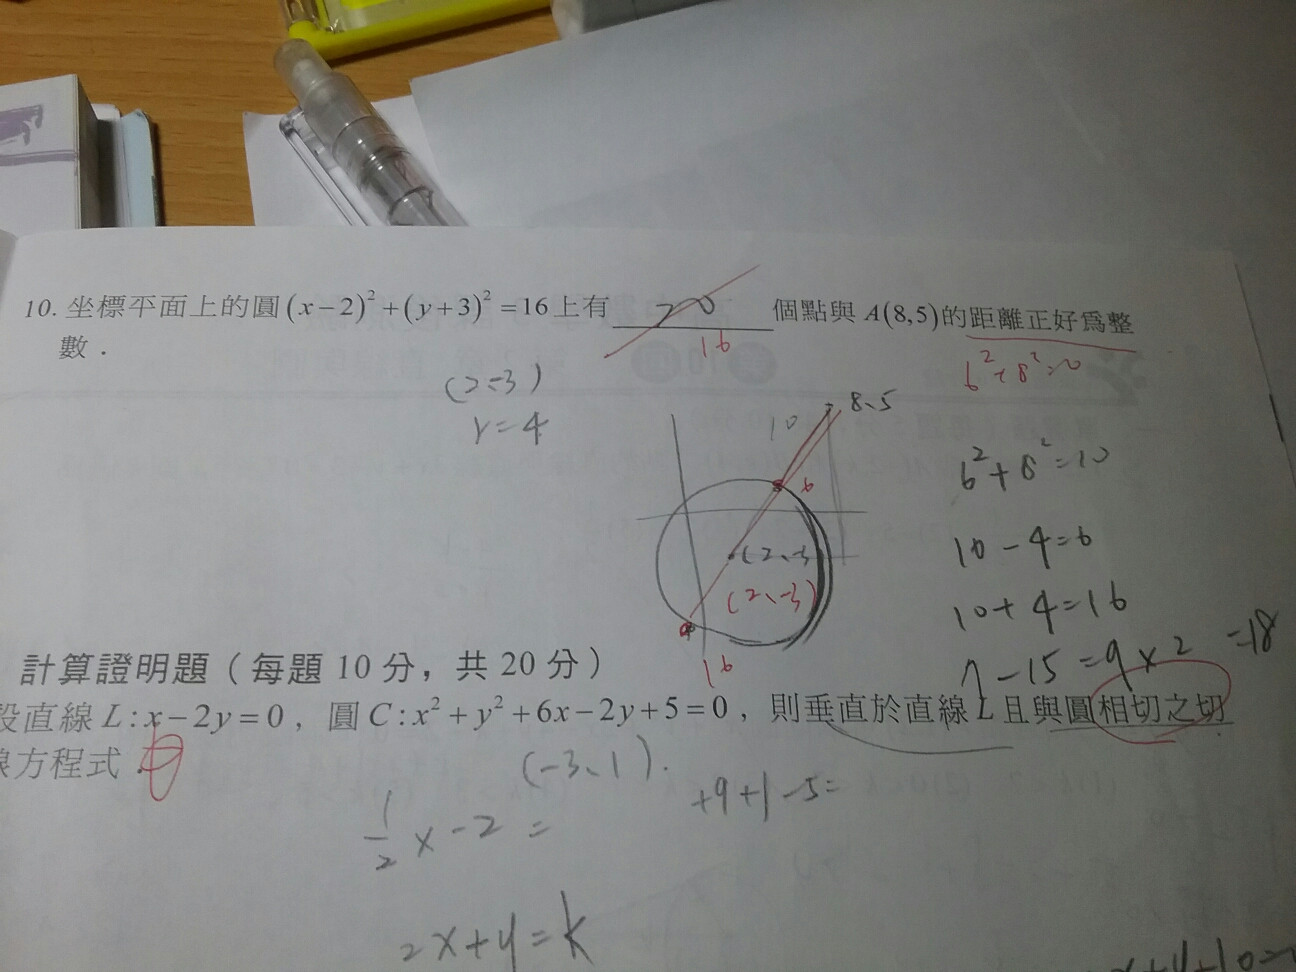 10. 坐標平面上的圓 (x-2)²+(y+3)²=16 上有 20 個點與 A(8,5) 的距離正好為整
16
數．
6²+8²=0
(2-3)
r=4
8、5
10
6
(2、-3
(2、-3)
16
6²+8²=10
10-4=6
10+4=16
7-15=9×2 =18
計算證明題（每題 10 分，共 20 分）
設直線 L:x-2y=0，圓 C:x²+y²+6x-2y+5=0，則垂直於直線 L 且與圓相切之切
線方程式．
(-3、1).
+9+1-5=
1/2 x-2=
2x+y=k